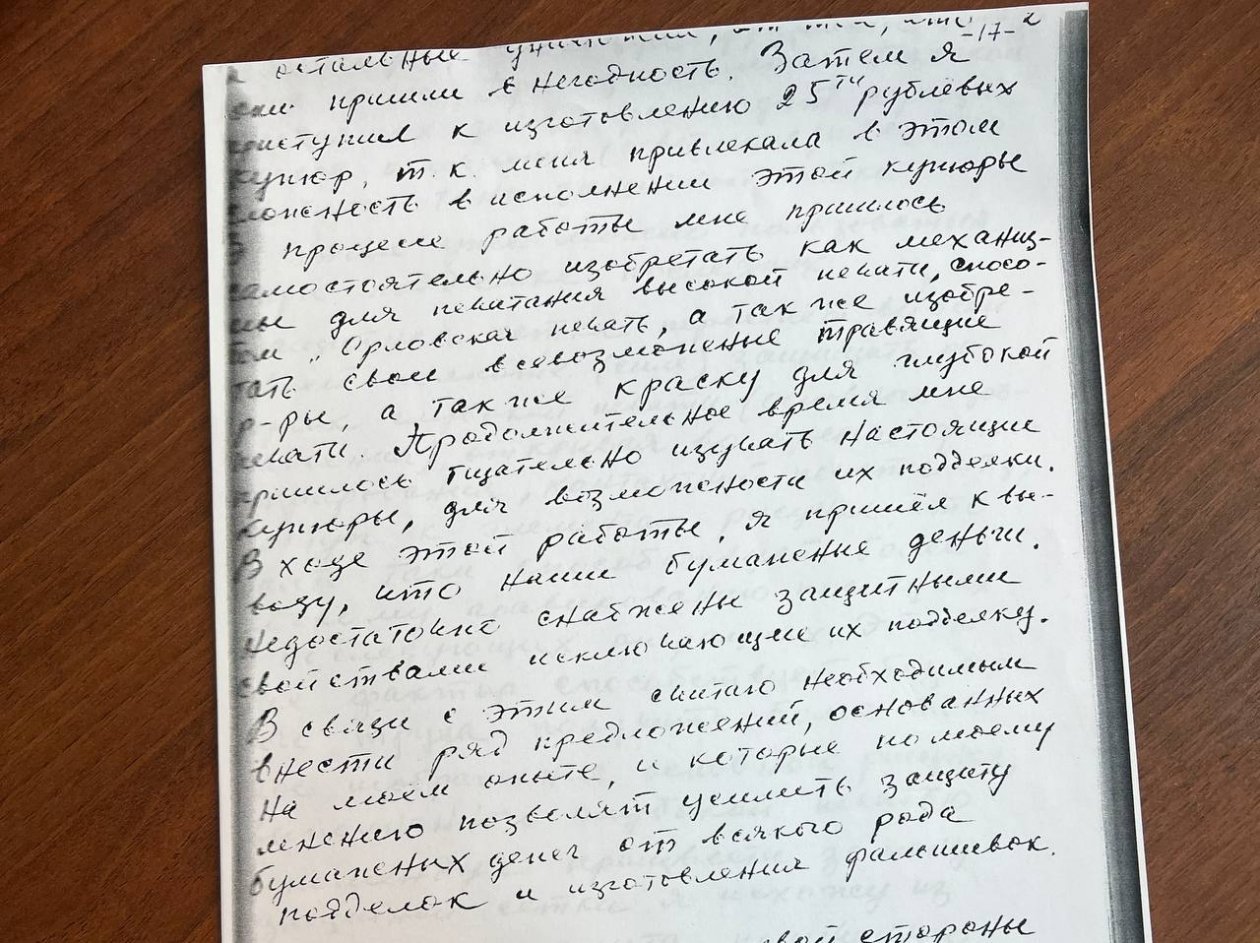 -17-
остальные
они пришли в негодность. Затем я
приступил к изготовлению 25ти рублёвых
купюр, т.к. меня привлекала в этом
сложность в исполнении этой купюры
В процессе работы мне пришлось
самостоятельно изобретать как механиз-
мы для печатания высокой печати, спосо-
бом „Орловская печать, а так же изобре-
тать свои всевозможные травящие
р-ры, а так же краску для глубокой
печати. Продолжительное время мне
пришлось тщательно изучать настоящие
купюры, для возможности их подделки.
В ходе этой работы, я пришёл к вы-
воду, что наши бумажные деньги.
недостаточно снабжены защитными
свойствами исключающие их подделку.
В связи с этим считаю необходимым
внести ряд предложений, основанных
на моем опыте, и которые по моему
мнению позволят усилить защиту
бумажных денег от всякого рода
подделок и изготовления фальшивок.
стороны